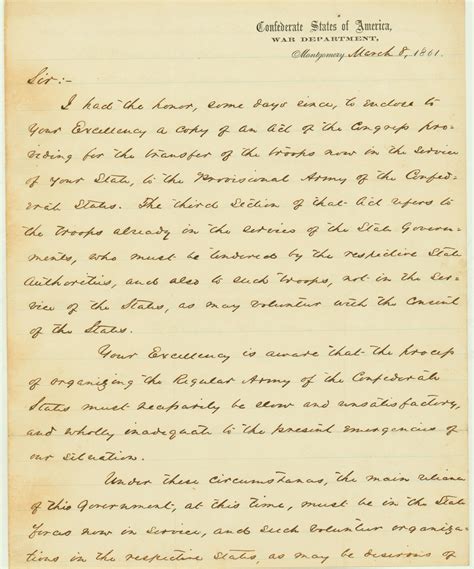 Confederate States of America,
WAR DEPARTMENT,
Montgomery March 8, 1861.
Sir:-
I had the honor, some days since, to enclose to
Your Excellency a copy of an Act of the Congress pro-
viding for the transfer of the troops now in the service
of your State, to the Provisional Army of the Confed-
erate States. The third Section of that Act refers to
the troops already in the services of the State Govern-
ments, who must be tendered by the respective State
Authorities, and also to such troops, not in the Ser-
vice of the States, as may volunteer with the Consent
of the States.
Your Excellency is aware that the process
of organizing the Regular Army of the Confederate
States must necessarily be slow and unsatisfactory,
and wholly inadequate to the present emergencies of
our situation.
Under these circumstances, the main reliance
of this Government, at this time, must be in the State
forces now in service, and such volunteer organiza-
tions in the respective States, as may be desirous of